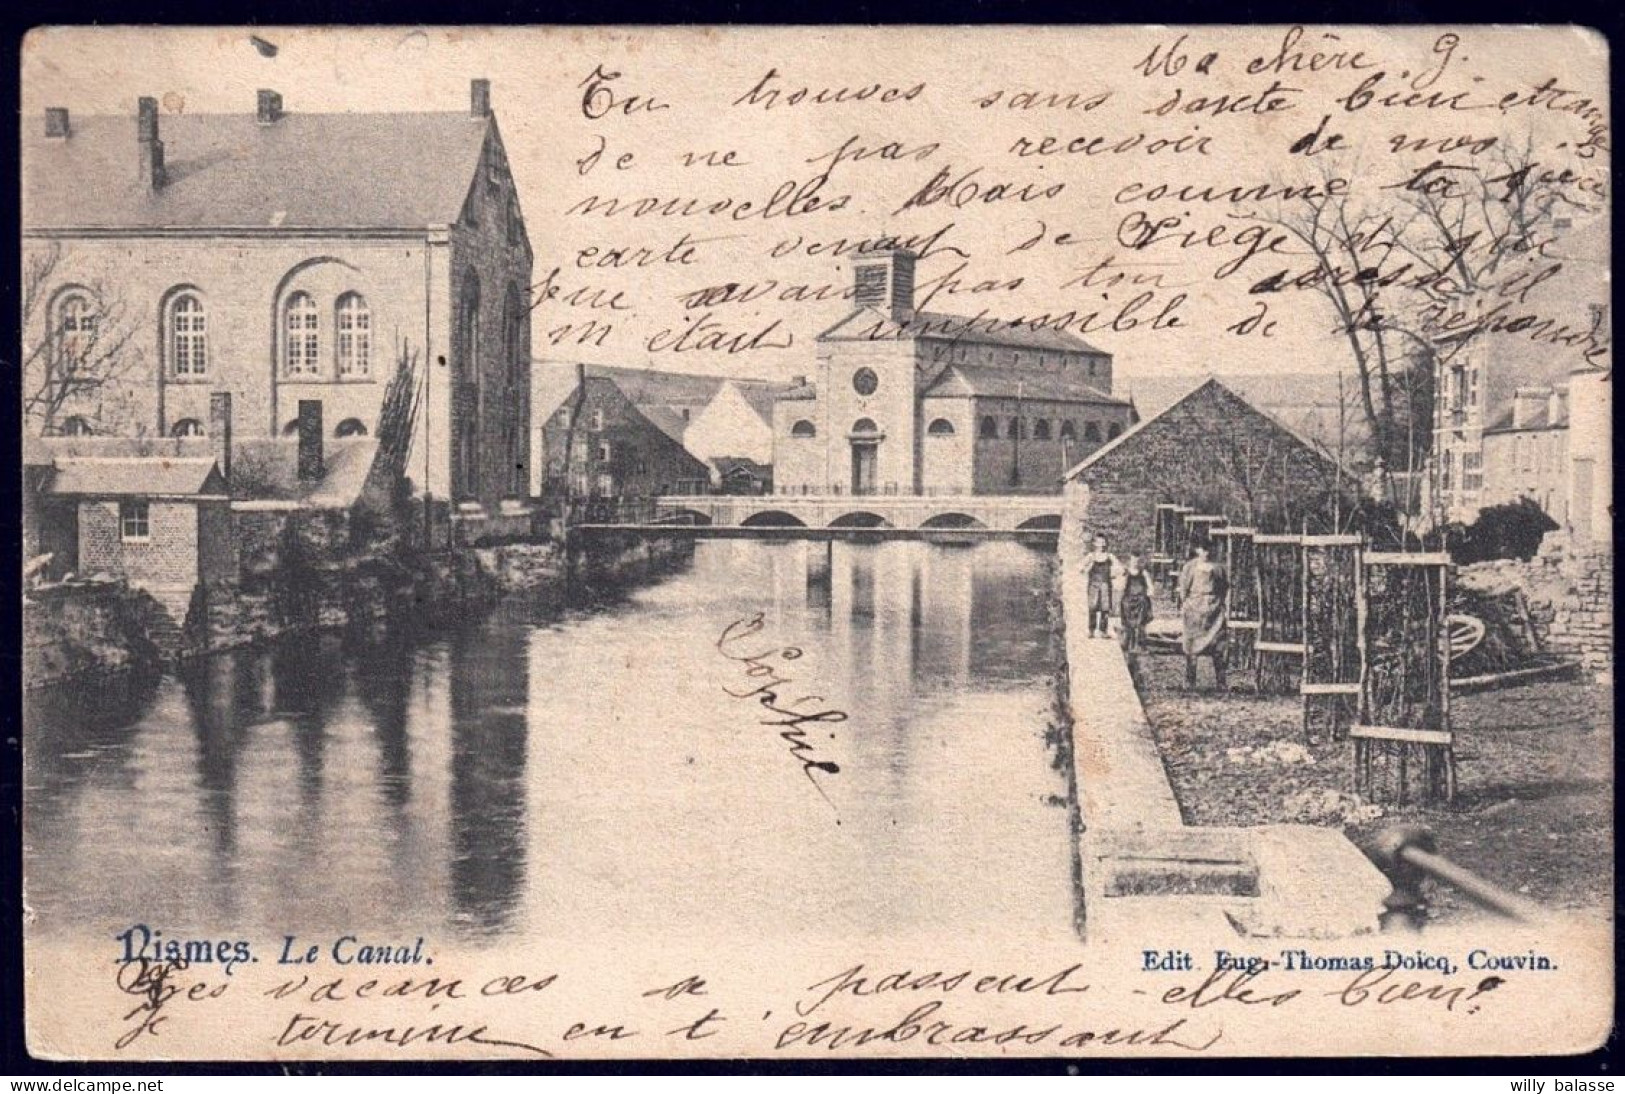 Ma chère G.
Tu trouves sans doute bien étrange
de ne pas recevoir de mes
nouvelles. Mais comme ta
carte venait de Liège et que
je ne savais pas ton adresse il
m'était impossible de te répondre
Sophie
Nismes. Le Canal.
Edit. Eug.-Thomas Doicq, Couvin.
Les vacances se passent-elles bien?
Je termine en t'embrassant
willy balasse